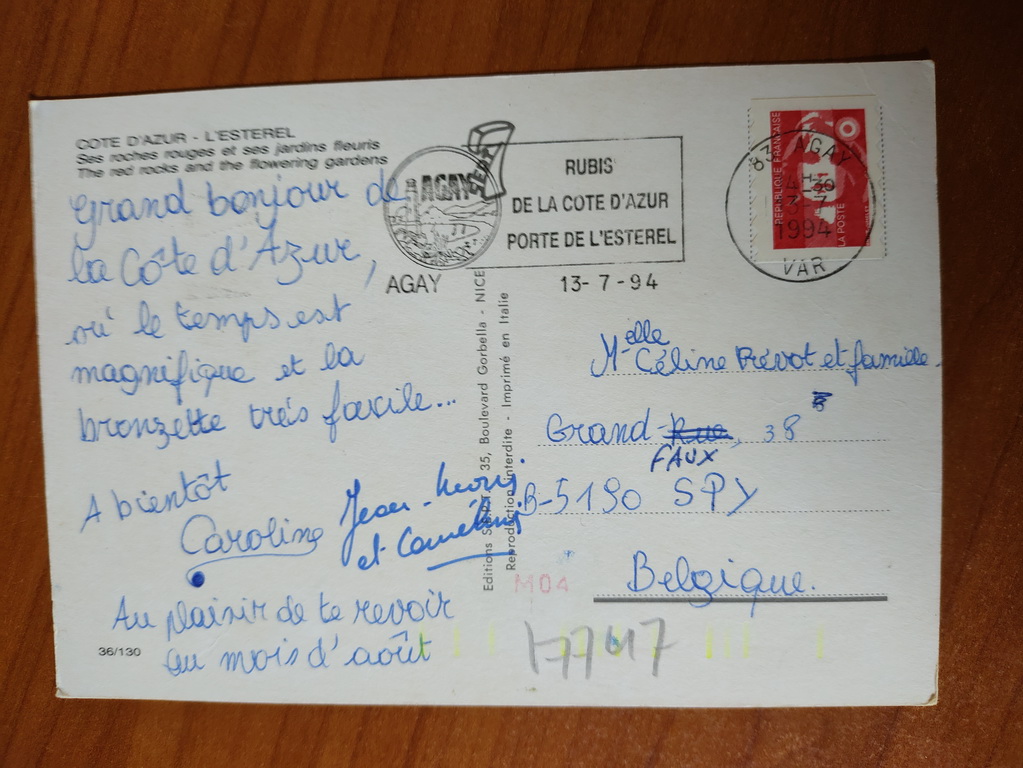 COTE D'AZUR - L'ESTEREL
Ses roches rouges et ses jardins fleuris
The red rocks and the flowering gardens
Grand bonjour de
la Côte d'Azur,
où le temps est
magnifique et la
bronzette très facile...
A bientôt
Caroline
Jean-
et
Au plaisir de te revoir
au mois d'août
36/130
AGAY
AGAY
RUBIS
DE LA COTE D'AZUR
PORTE DE L'ESTEREL
13-7-94
83 AGAY
1994
VAR
REPUBLIQUE FRANÇAISE
LA POSTE
Editions 35, Boulevard Gorbella - NICE
Reproduction interdite - Imprimé en Italie
Melle Céline Prévot et famille
Grand-Rue, 38
FAUX
B-5190 SPY
Belgique.
M04
17747